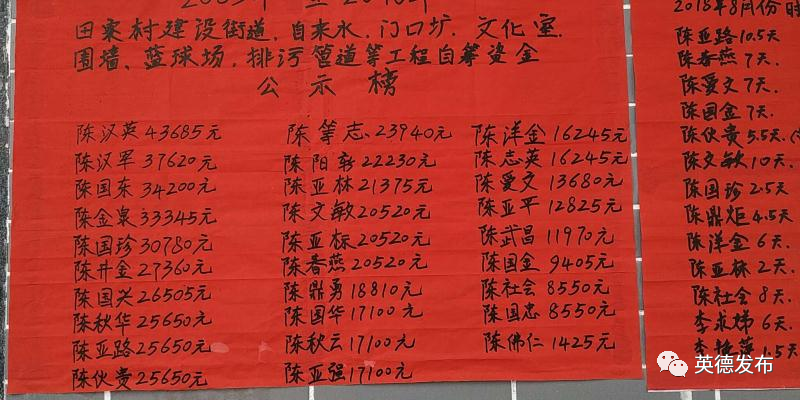 田寮村建设街道,自来水,门口圹,文化室,
围墙、蓝球场,排污管道等工程自筹资金
公示榜
陈汉英43685元
陈汉军37620元
陈国东34200元
陈金泉33345元
陈国珍30780元
陈井金27360元
陈国兴26505元
陈秋华25650元
陈亚路25650元
陈伙贵25650元
陈等志23940元
陈阳新22230元
陈亚林21375元
陈文敏20520元
陈亚栋20520元
陈春燕20520元
陈鼎勇18810元
陈国华17100元
陈秋云17100元
陈亚强17100元
陈洋金16245元
陈志英16245元
陈爱文13680元
陈亚平12825元
陈武昌11970元
陈国金9405元
陈社会8550元
陈国忠8550元
陈佛仁1425元
2018年8月份
陈亚路10.5天
陈春燕7天.
陈爱文7天.
陈国金7天.
陈伙贵5.5天
陈文敏10天.
陈国珍2.5天
陈鼎炬4.5天
陈洋金6天.
陈亚林2天.
陈社会8天.
李求娣6天.
1.5天
英德发布